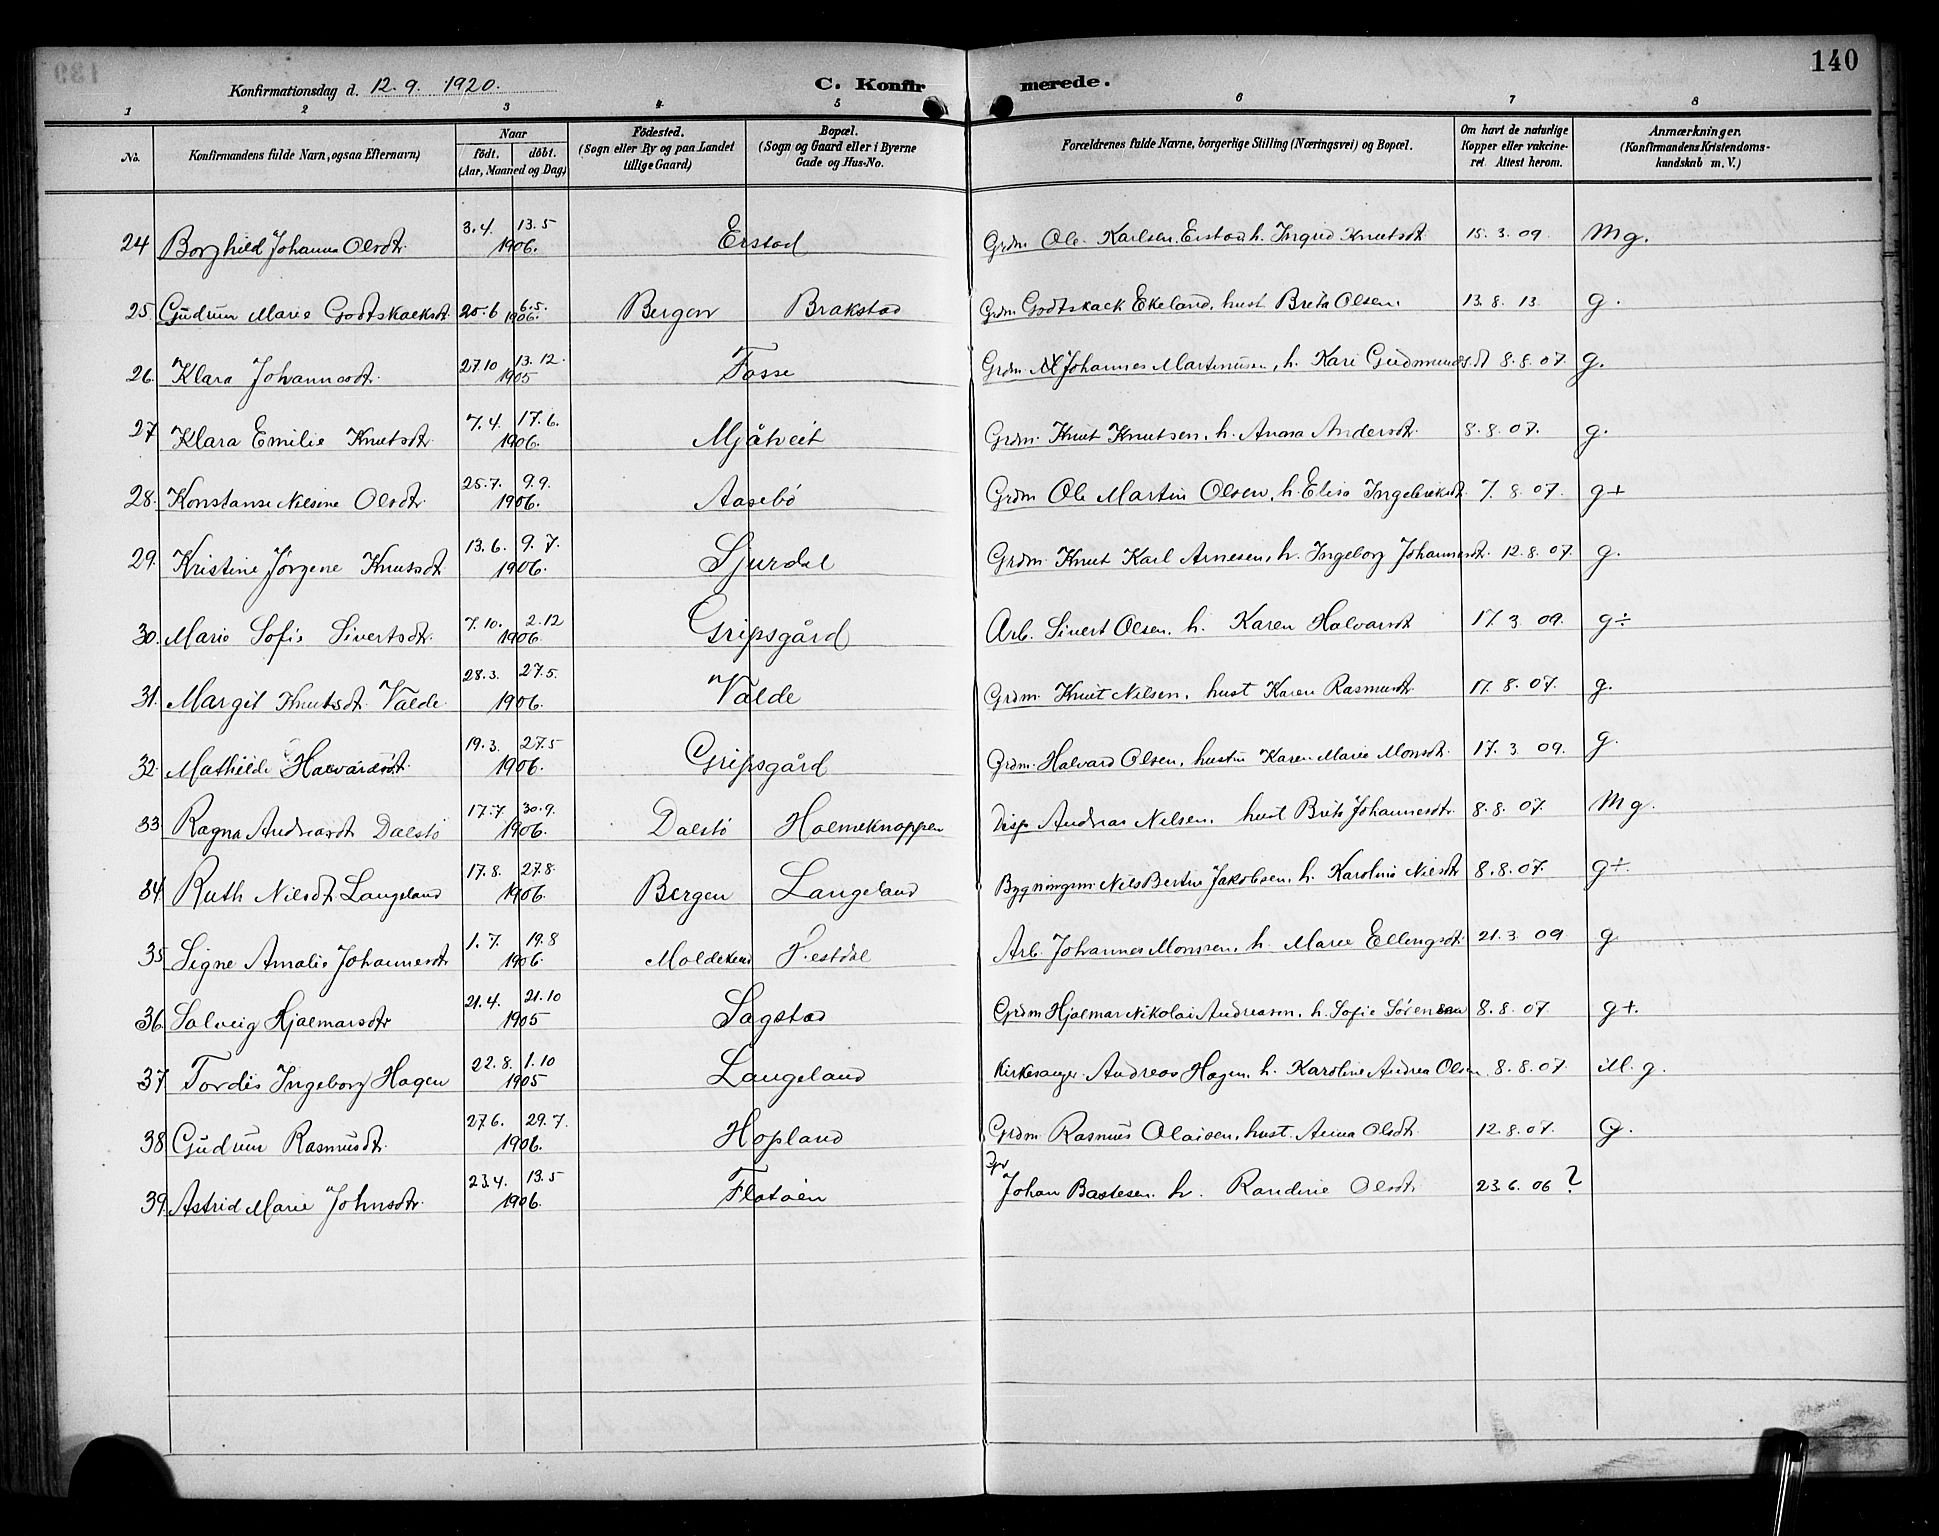 140
Konfirmationsdag d. 12. 9. 1920.
C. Konfirmerede.
1 2 3 4 5 6 7 8
No. Konfirmandens fulde Navn, ogsaa Efternavn) Naar født. døbt. (Aar, Maaned og Dag) Fødested. (Sogn eller By og paa Landet tillige Gaard) Bopæl. (Sogn og Gaard eller i Byerne Gade og Hus-No. Forældrenes fulde Navne, borgerlige Stilling (Næringsvei) og Bopæl. Om havt de naturlige Kopper eller vakcineret Attest herom. Anmærkninger. (Konfirmandens Kristendomskundskab m. V.)
24 Borghild Johanna Olsdtr. 3.4. 13.5 1906. Eistad Grdm Ole Karlsen Eistad h. Ingrid Knutsdt 15.3.09. Mg.
25. Gudrun Marie Godtskalksdt. 25.6 6.5. 1906. Bergen Brakstad Grdm Godtskalk Ekeland, hust Breta Olsen 13.8.13. g.
26. Klara Johannesdt. 27.10 13.12. 1905 Fosse Grdm Johannes Martinusen, h. Kari Gudmundsdt 8.8.07. g.
27 Klara Emilie Knutsdt. 7.4. 17.6. 1906. Mjåtveit Grdm. Knut Knutsen, h. Anna Andersdt. 8.8.07. g.
28. Konstanse Nilsine Olsdt. 25.7. 9.9. 1906. Aasebø Grdm Ole Martin Olsen, h. Elisa Ingebriktsdt. 7.8.07. g+
29. Kristine Jørgene Knutsdt 13.6. 9.7. 1906. Sjurdal Grdm. Knut Karl Arnesen, h. Ingeborg Johannesdt. 12.8.07. g.
30. Marie Sofie Sivertsdt. 7.10. 2.12 1906. Gripsgård Arb. Sivert Olsen, h. Karen Halvarsdt 17.3 09. g÷
31. Margit Knutsdt. Valde. 28.3. 27.5. 1906. Valde Grdm. Knut Nilsen, hust Karen Rasmusdt. 17.8.07. g.
32. Mathilde Halvardsdt. 19.3. 27.5 1906. Gripsgård Grdm. Halvard Olsen, hustru Karen Marie Monsdt. 17.3 09. g.
33 Ragna Andreasdt Dalstø 17.7. 30.9. 1906. Dalstø Holmeknappen Disp Andreas Nilsen, hust Brita Johannesdt. 8.8.07. Mg.
34 Ruth Nilsdt. Langeland 17.8. 27.8. 1906. Bergen Langeland Bygningsm Nils Bertin Jakobsen, h. Karoline Nilsdt 8.8.07. g+.
35 Signe Amalie Johannesdt. 1.7. 19.8 1906. Moldeklev Hestdal Arb. Johannes Monssen, h. Marie Ellingsdt. 21.3 09 g
36 Solveig Hjalmarsdtr 21.4. 21.10 1905 Sagstad Grdm Hjalmar Nikolai Andreasen, h. Sofie Sørensen 8.8.07. g+.
37. Tordis Ingeborg Hagen 22.8. 1.10 1905 Langeland Kirkesanger Andreas Hagen, h. Karoline Andrea Olsen 8.8.07. M. g.
38 Gudrun Rasmusdt. 27.6. 29.7. 1906. Hopland Grdm. Rasmus Olaisen, hust. Anna Olsdt. 12.8.07. G.
39. Astrid Marie Johnsdt. 23.4. 13.5 1906. Flatøen Johan Bastesen h. Randine Olsdt 23.6.06 ?